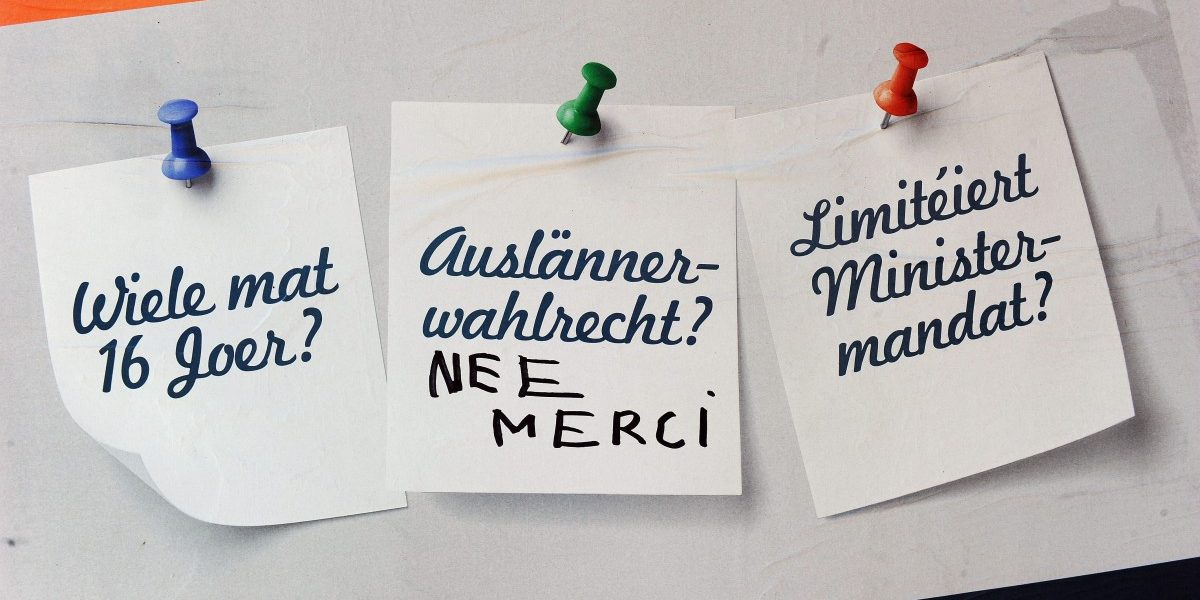 Wiele mat
16 Joer?
Auslänner-
wahlrecht?
NEE
MERCI
Limitéiert
Minister-
mandat?